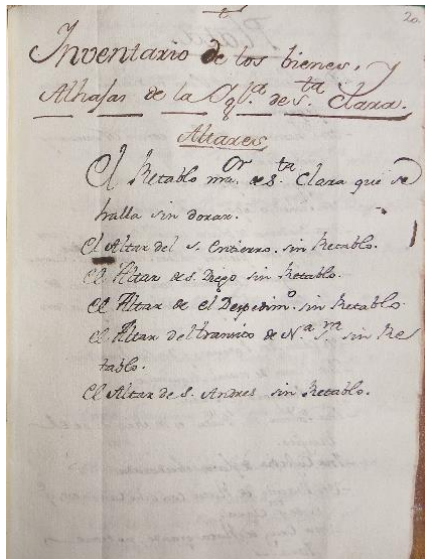 20
Inventario de los bienes, y
Alhajas de la Yglª. de Sta. Clara.
Altares
El Retablo mor. de Sta. Clara que se
halla sin dorar.
El Altar del S. Entierro. sin Retablo.
El Altar de S. Diego sin Retablo.
El Altar de el Despedimº. sin Retablo.
El Altar del transito de N.ª S.ra sin Re
tablo.
El Altar de S. Andres sin Retablo.